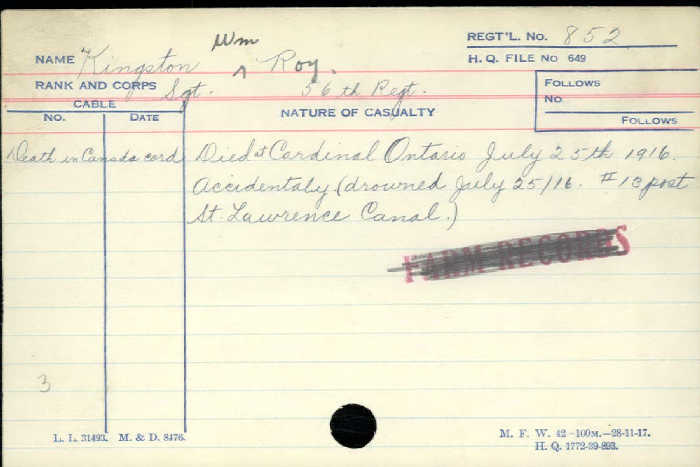 REGT'L. No. 852
NAME Kingston Wm ^ Roy.
H. Q. FILE No 649
RANK AND CORPS Sgt. 56th Regt.
FOLLOWS
No.
FOLLOWS
CABLE
No. DATE
NATURE OF CASUALTY
Death in Canada card Died at Cardinal Ontario July 25th 1916.
Accidentaly (drowned July 25/16. # 13 post
St. Lawrence Canal.)
FARM RECORDS
3
L. L. 31493. M. & D. 8476.
M. F. W. 42-100M.-28-11-17.
H. Q. 1772-39-893.